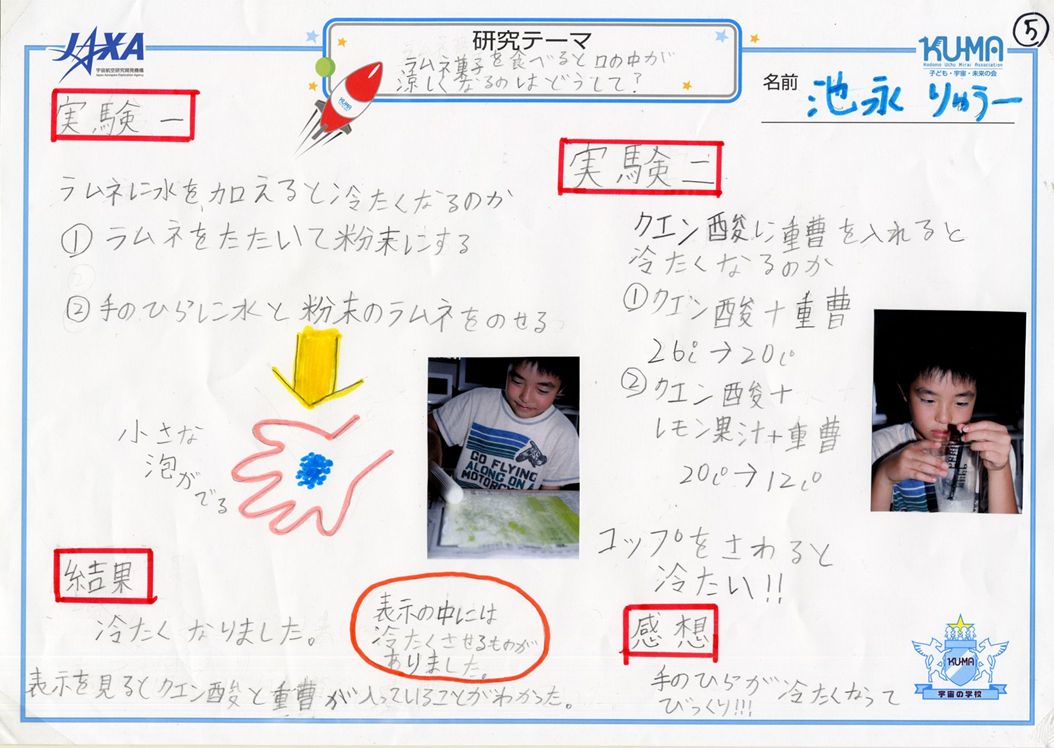 ⑤
JAXA
宇宙航空研究開発機構
Japan Aerospace Exploration Agency
研究テーマ
ラムネ菓子を食べると口の中が
涼しくなるのはどうして？
KUMA
Kodomo Uchu Mirai Association
子ども・宇宙・未来の会
名前 池永 りゅう一
実験一
ラムネに水を加えると冷たくなるのか
① ラムネをたたいて粉末にする
② 手のひらに水と粉末のラムネをのせる
小さな
泡が
でる
GO FLYING
ALONG ON A
MOTORCY
結果
冷たくなりました。
表示の中には
冷たくさせるものが
ありました。
表示を見るとクエン酸と重曹が入っていることがわかった。
実験二
クエン酸に重曹を入れると
冷たくなるのか
①クエン酸＋重曹
26℃→20℃
②クエン酸＋
レモン果汁＋重曹
20℃→12℃
コップをさわると
冷たい!!
感想
手のひらが冷たくなって
びっくり!!!
KUMA
宇宙の学校